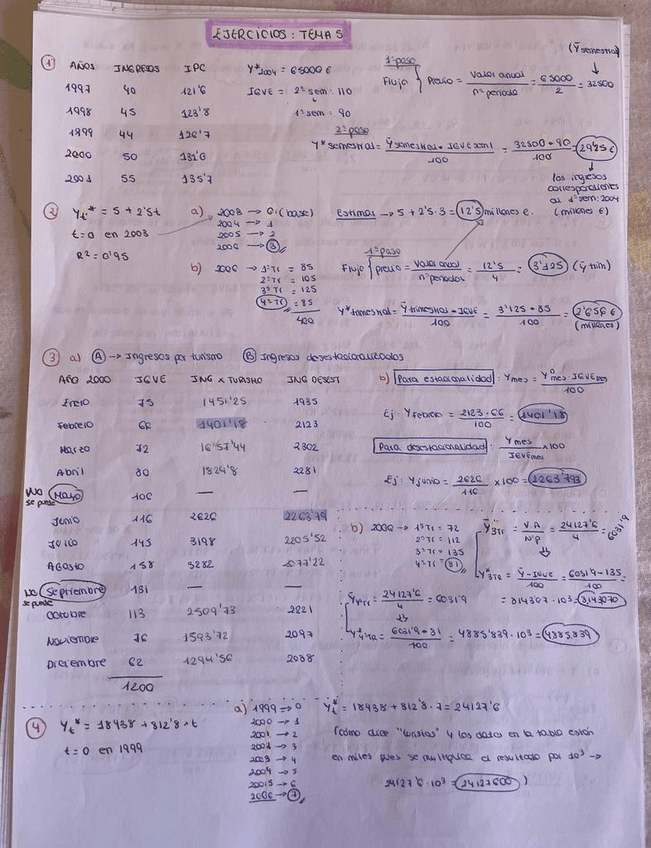 EJERCICIOS: TEMA 5
① AÑOS INGRESOS IPC
1997 40 121'6
1998 45 123'8
1999 44 126'7
2000 50 131'0
2001 55 135'7
Y*2004 = 65000 €
IGVE = 2º sem: 110
1º sem: 90
1º paso
Flujo { Previo = Valor anual / nº periodo = 65000 / 2 = 32500
(Ȳ semestral)
2º paso
Y* semestral = Ȳ semestral · IGVE sem1 / 100 = 32500 · 90 / 100 =
los ingresos
correspondientes
al 1º sem. 2004
(millones €)
② Yt* = 5 + 2'5t
t=0 en 2003
R² = 0'95
a) 2003 → 0 (base)
2004 → 1
2005 → 2
2006 → 3
Estimar → 5 + 2'5 · 3 = 12'5 millones €.
b) 2006 → 1º Tr = 85
2º Tr = 105
3º Tr = 125
4º Tr = 85
400
1º paso
Flujo { previo = Valor anual / nº periodos = 12'5 / 4 = 3'125 (Ȳ trim)
Y* trimestral = Ȳ trimestral · IGVE / 100 = 3'125 · 85 / 100 = 2'656 €
(millones)
③ a) Ⓐ → Ingresos por turismo Ⓑ Ingresos desestacionalizados
AÑO 2000 IGVE ING x TURISMO ING DESEST
Enero 75 1451'25 1935
Febrero 66 1401'18 2123
Marzo 72 1657'44 2302
Abril 80 1824'8 2281
No se puede Mayo 106 — —
Junio 116 2626 2263'79
Julio 145 3198 2205'52
Agosto 158 3282 2077'22
No se puede Septiembre 131 — —
Octubre 113 2509'73 2221
Noviembre 76 1593'72 2097
Diciembre 62 1294'56 2088
1200
b) Para estacionalidad: Ymes = Yºmes · IGVEmes / 100
Ej: Y Febrero = 2123 · 66 / 100 = 1401'18
Para desestacionalidad: Ymes / IGVEmes x100
Ej: Y junio = 2626 / 116 x 100 = 2263'793
b) 2006 → 1º Tr = 72
2º Tr = 112
3º Tr = 135
4º Tr = 81
Ȳ3TR = V.A / Nº P = 24127'6 / 4 = 6031'9
Y*3TR = Ȳ · IGVE / 100 = 6031'9 · 135 / 100 =
Ȳ4TR = 24127'6 / 4 = 6031'9
Y*4TR = 6031'9 · 81 / 100 = 4885'839 · 10³ = 4885839
④ Yt* = 18438 + 812'8 · t
t = 0 en 1999
a) 1999 → 0
2000 → 1
2001 → 2
2002 → 3
2003 → 4
2004 → 5
2005 → 6
2006 → 7
Yt* = 18438 + 812'8 · 7 = 24127'6
(como dice "turistas" y los datos en la tabla están
en miles pues se multiplica el resultado por 10³ →
24127'6 · 10³ = 24127600)